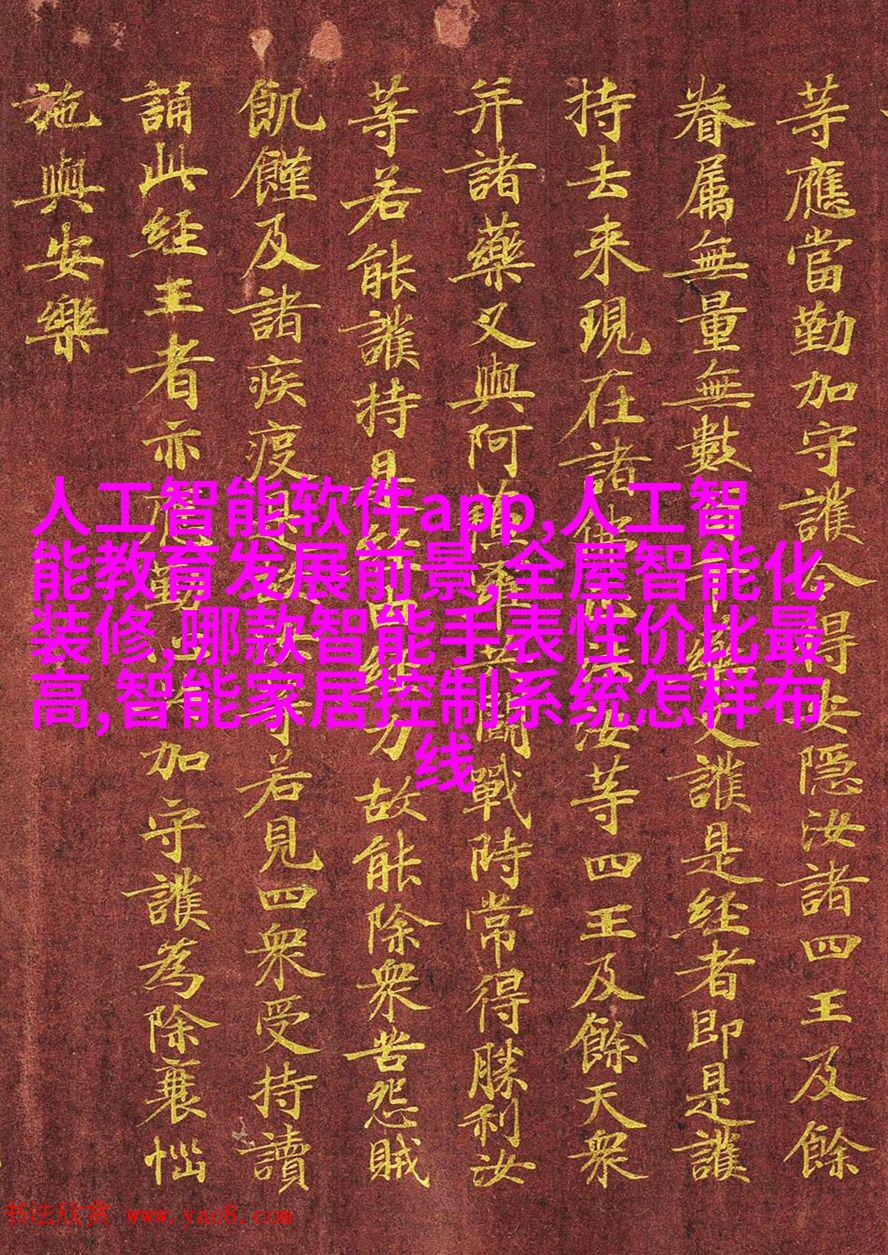 等應當勤加守護令得安隱汝諸四王及餘
眷属無量無數叉護是經者即是護
持去来現在諸佛汝等四王及餘天衆
并諸藥叉與阿鬪戰時常得勝利汝
等若能護持是經力故能除衆苦怨賊
飢饉及諸疾疫是等若見四衆受持讀
誦此經王者亦應加守護為除襄惱
施與安樂
人工智能软件app,人工智
能教育发展前景,全屋智能化
装修,哪款智能手表性价比最
高,智能家居控制系统怎样布
线
书法欣赏 www.yac8.com